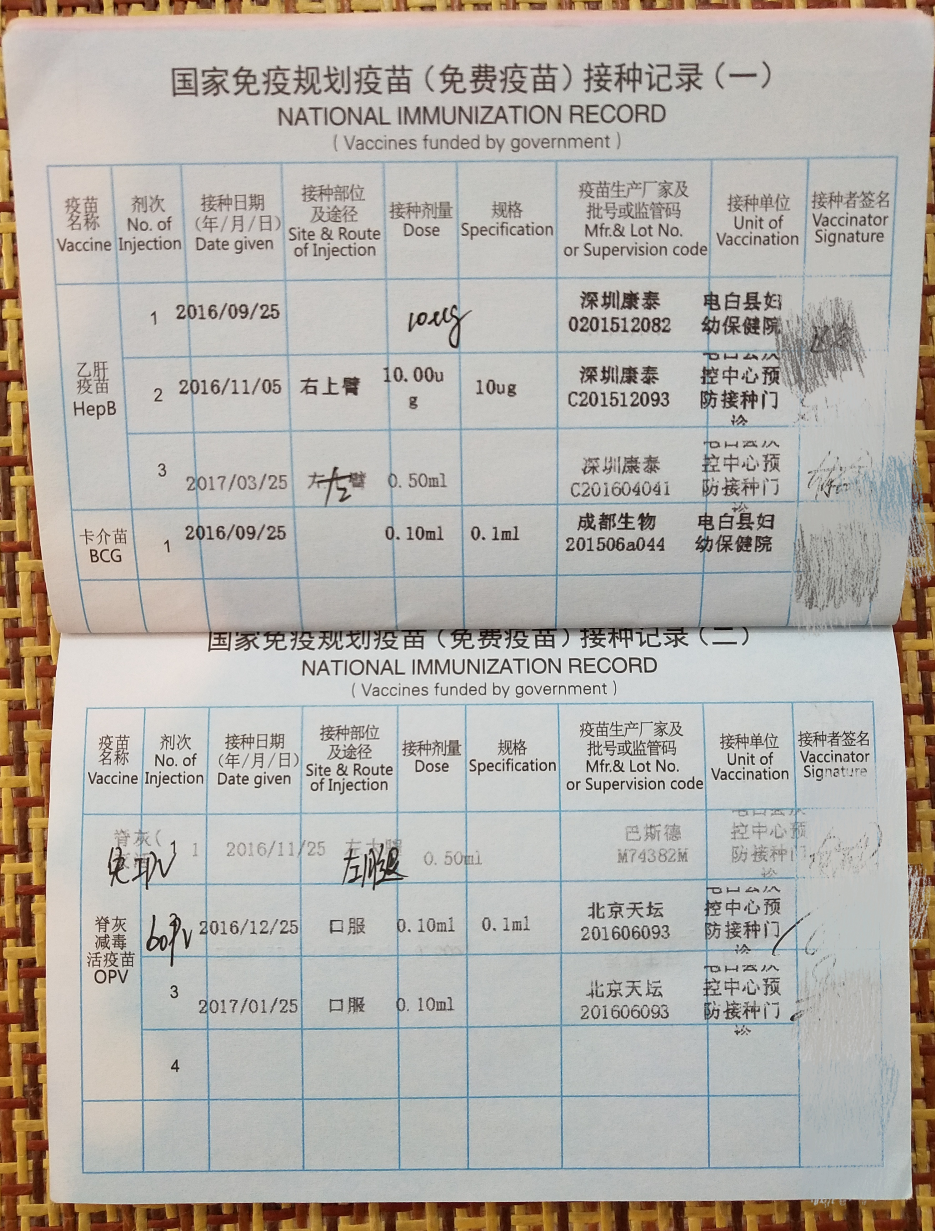 国家免疫规划疫苗（免费疫苗）接种记录（一）
NATIONAL IMMUNIZATION RECORD
( Vaccines funded by government )
疫苗
名称
Vaccine
剂次
No. of
Injection
接种日期
（年/月/日）
Date given
接种部位
及途径
Site & Route
of Injection
接种剂量
Dose
规格
Specification
疫苗生产厂家及
批号或监管码
Mfr.& Lot No.
or Supervision code
接种单位
Unit of
Vaccination
接种者签名
Vaccinator
Signature
乙肝
疫苗
HepB
1
2016/09/25
10ug
深圳康泰
0201512082
电白县妇
幼保健院
2
2016/11/05
右上臂
10.00u
g
10ug
深圳康泰
C201512093
控中心预
防接种门
诊
3
2017/03/25
左
臂
0.50ml
深圳康泰
C201604041
控中心预
防接种门
诊
卡介苗
BCG
1
2016/09/25
0.10ml
0.1ml
成都生物
201506a044
电白县妇
幼保健院
国家免疫规划疫苗（免费疫苗）接种记录（二）
NATIONAL IMMUNIZATION RECORD
( Vaccines funded by government )
疫苗
名称
Vaccine
剂次
No. of
Injection
接种日期
（年/月/日）
Date given
接种部位
及途径
Site & Route
of Injection
接种剂量
Dose
规格
Specification
疫苗生产厂家及
批号或监管码
Mfr.& Lot No.
or Supervision code
接种单位
Unit of
Vaccination
接种者签名
Vaccinator
Signature
脊灰
减毒
活疫苗
OPV
脊灰(
1
1
2016/11/25
左大腿
左腿
0.50ml
巴斯德
M74382M
控中心预
防接种门
诊
2016/12/25
口服
0.10ml
0.1ml
北京天坛
201606093
控中心预
防接种门
诊
3
2017/01/25
口服
0.10ml
北京天坛
201606093
控中心预
防接种门
诊
4